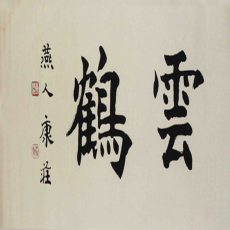 雲鶴
燕人康莊